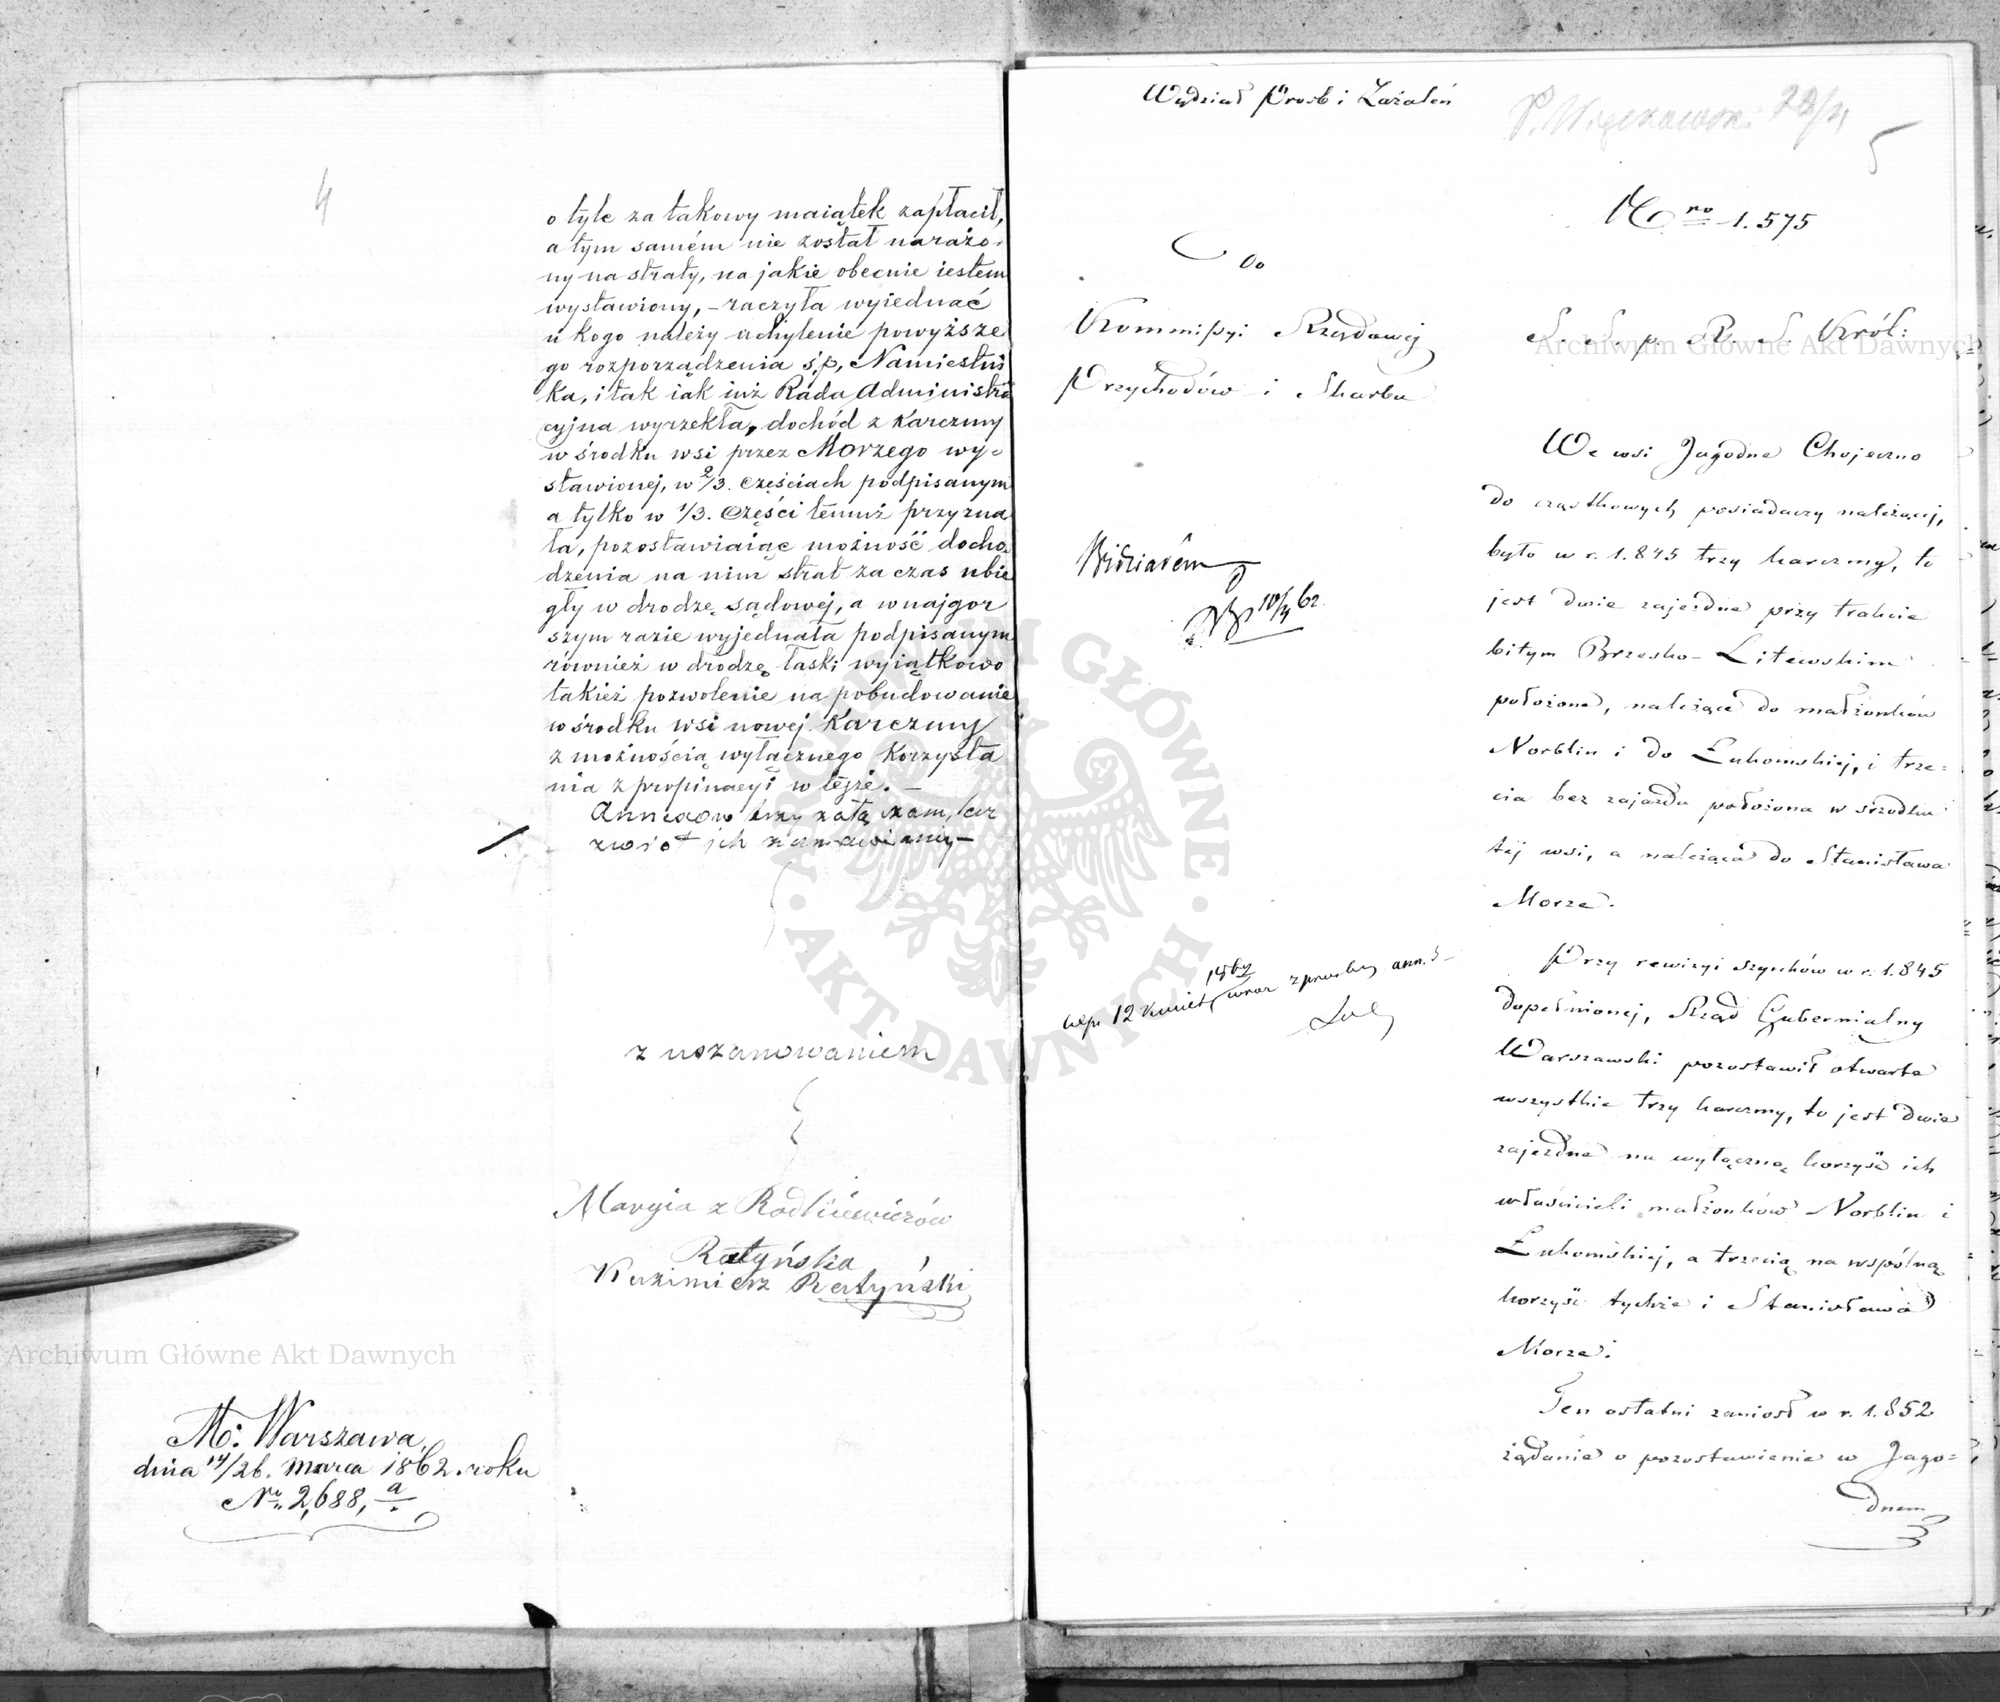 4
o tyle za takowy maiątek zapłacił,
a tym samém nie został narażo-
ny na straty, na jakie obecnie iestem
wystawiony, – raczyła wyiednać
u kogo należy uchylenie powyższe
go rozporządzenia ś.p. Namiestni
ka, i tak iak iuż Rada Administra
cyjna wyrzekła, dochód z Karczmy
w środku wsi przez Morzego wy-
stawionej, w 2/3. częściach podpisanym
a tylko w 1/3. części temuż przyzna
ła, pozostawiaiąc możność docho
dzenia na nim strat za czas ubie
gły w drodze sądowej, a w najgor
szym razie wyjednała podpisanym
również w drodze łaski wyiątkowo
takież pozwolenie na pobudowanie
w środku wsi nowej Karczmy
z możnością wyłącznego korzysta
nia z propinacyi w tejże. –
Annexow trzy załączam,
zwrot ich zamawiamy –
z uszanowaniem
Maryia z Radkiewiczów
Ratyńska
Kazimierz Ratyński
M: Warszawa
dnia 14/26. Marca 1862. roku
Nr. 2,688, a
Wydział Prosb i Zażaleń
P. Więckowski
5
Nro 1.575
Do
Kommissyi Rządowej
Przychodów i Skarbu
S. S. p. R. S. Król:
We wsi Jagodne Chojeczno
do cząstkowych posiadaczy należącej,
było w r. 1.845 trzy karczmy, to
jest dwie zajezdne przy trakcie
bitym Brzesko-Litewskim
położone, należące do małżonków
Norblin i do Łukomskiej, i trze=
cia bez zajazdu położona w środku
tej wsi, a należąca do Stanisława
Morze.
Przy rewizyi szynków w r. 1.845
dopełnionej, Rząd Gubernialny
Warszawski pozostawił otwarte
wszystkie trzy karczmy, to jest dwie
zajezdne na wyłączną korzyść ich
właścicieli małżonków Norblin i
Łukomskiej, a trzecią na wspólną
korzyść tychże i Stanisława
Morze.
Ten ostatni zaniosł w r. 1.852
żądanie o pozostawienie w Jago=
dnem
10/4 62
12 Kwiet
Archiwum Główne Akt Dawnych
Archiwum Główne Akt Dawnych
ARCHIWUM GŁÓWNE · AKT DAWNYCH ·